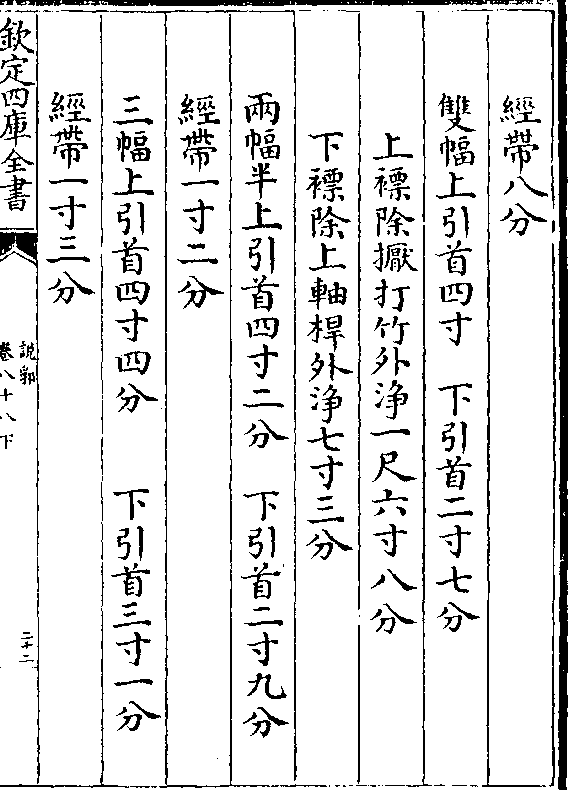 經帶八分
雙幅上引首四寸　下引首二寸七分
上褾除擫打竹外淨一尺六寸八分
下褾除上軸桿外淨七寸三分
兩幅半上引首四寸二分　下引首二寸九分
經帶一寸二分
三幅上引首四寸四分　下引首三寸一分
經帶一寸三分
欽定四庫全書
說郛
卷八十八下
二十二